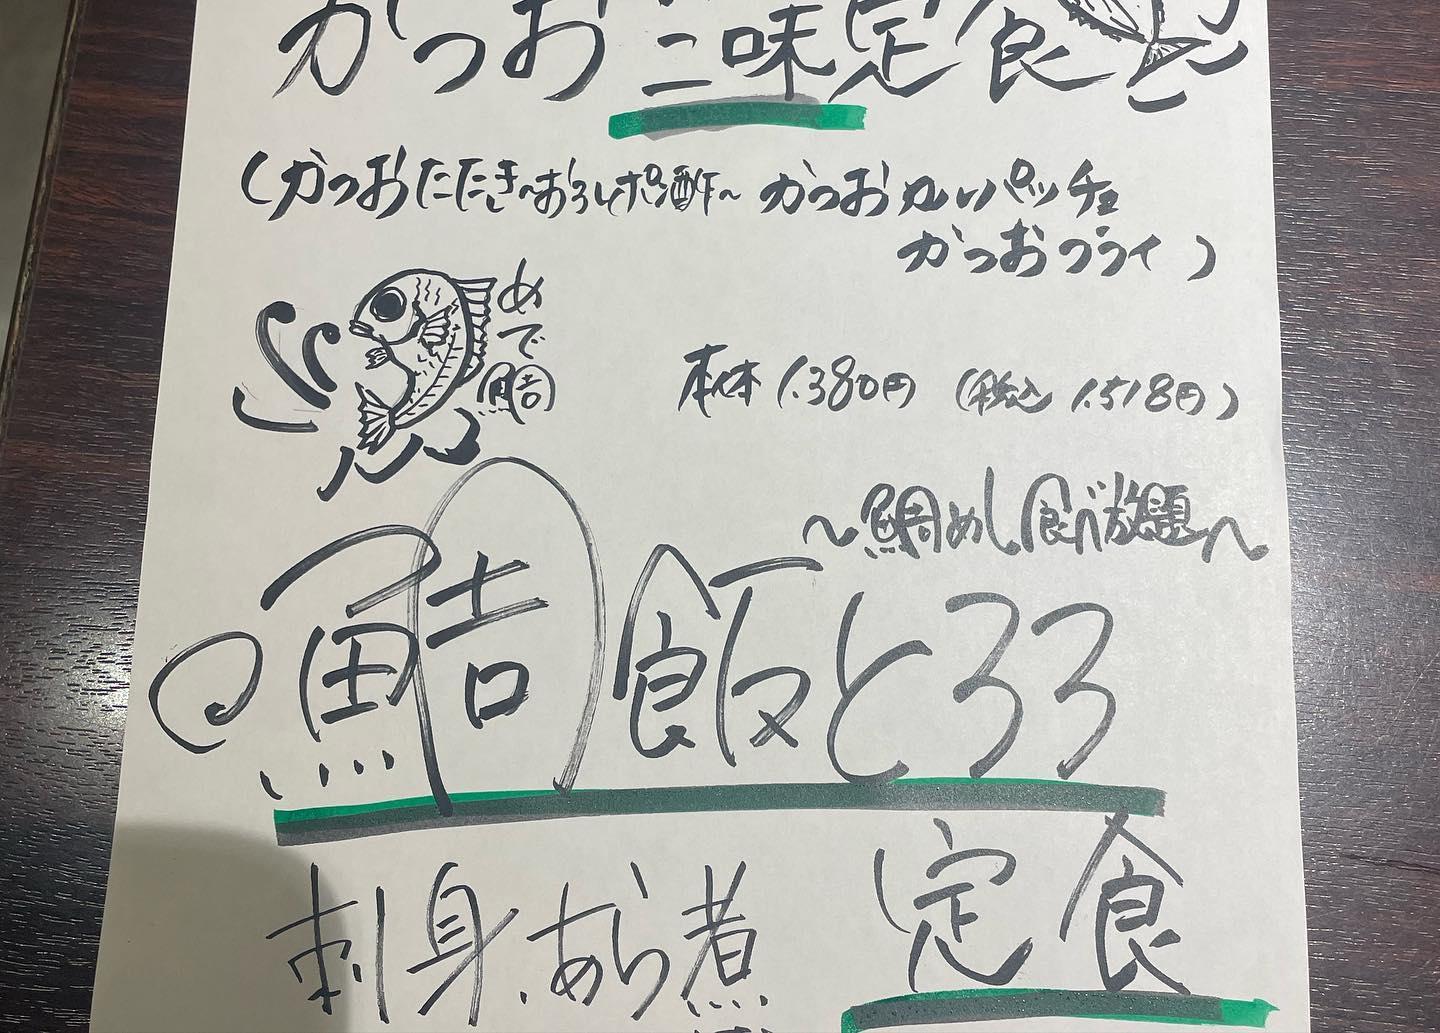 かつお三味定食
(かつおたたき~おろしポン酢~ かつおカルパッチョ
かつおフライ)
めで鯛
本体 1.380円 (税込 1.518円)
~鯛めし食べ放題~
鯛飯とろろ
刺身、あら煮 定食